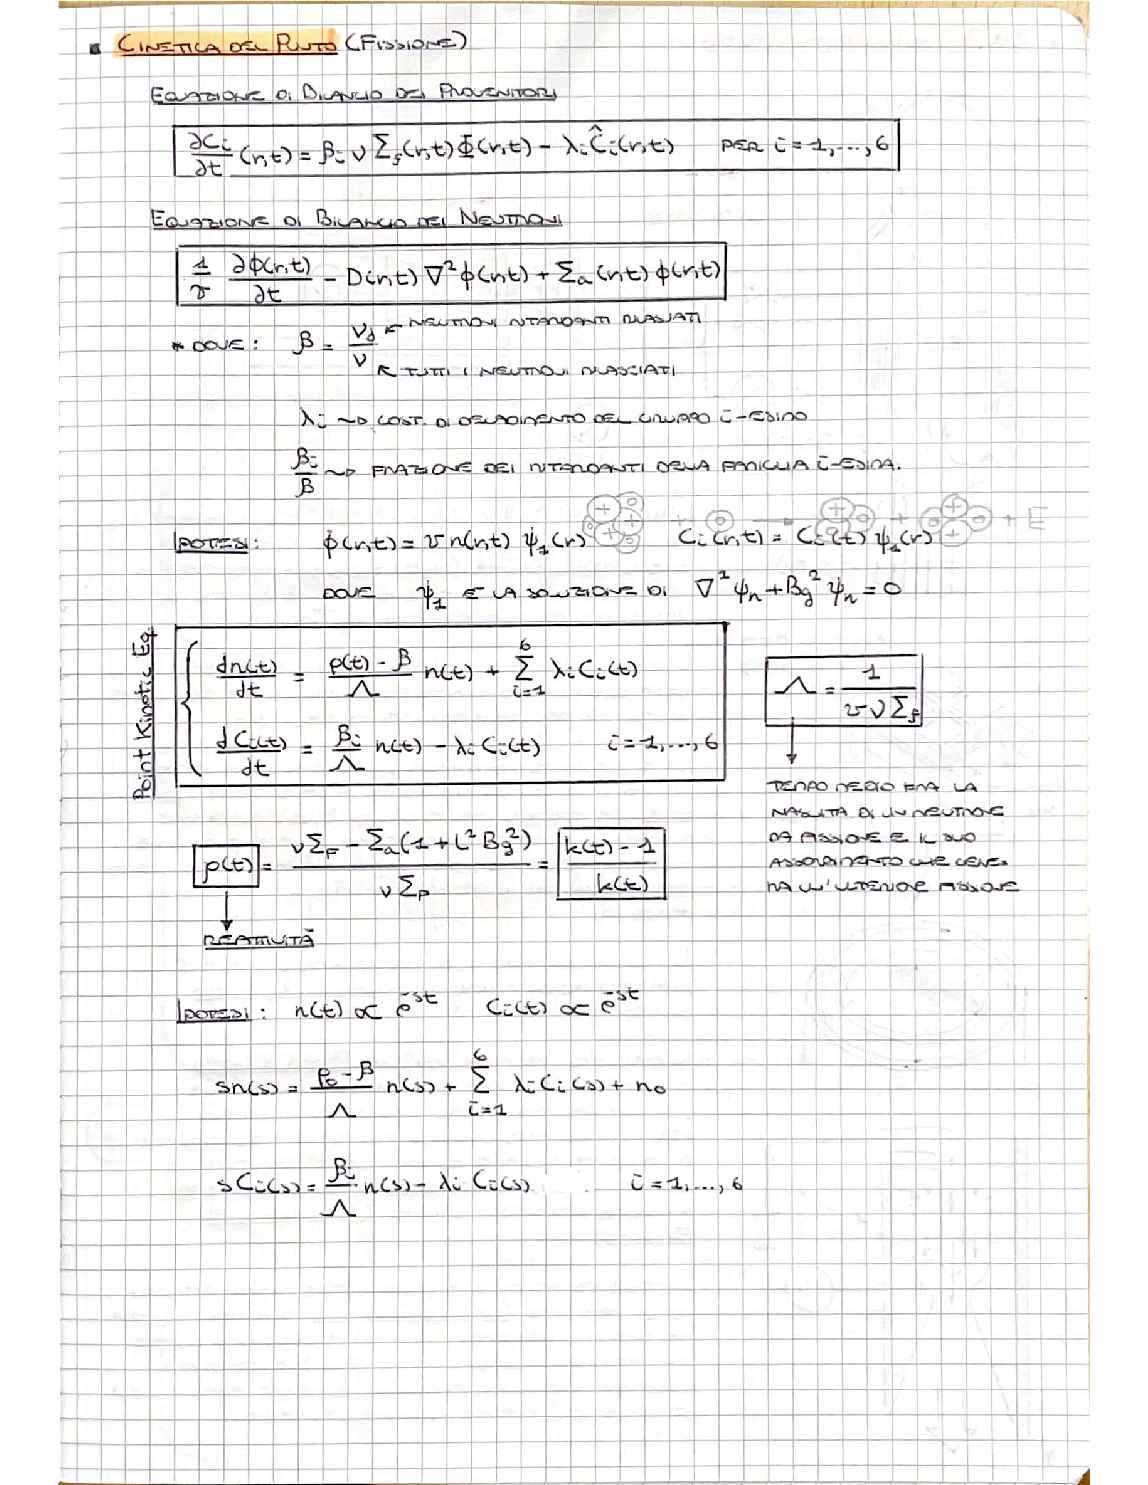 ▪ CINETICA DEL PUNTO (FISSIONE)
EQUAZIONE DI BILANCIO DEI PRECURSORI
∂Ci/∂t (r,t) = βi ν Σf(r,t) Φ(r,t) - λi Ĉi(r,t) PER i = 1,...,6
EQUAZIONE DI BILANCIO DEI NEUTRONI
1/v ∂ϕ(r,t)/∂t - D(r,t) ∇²ϕ(r,t) + Σa(r,t) ϕ(r,t)
* DOVE: β = νd/ν ← NEUTRONI RITARDANTI RILASCIATI
← TUTTI I NEUTRONI RILASCIATI
λi ~> COST. DI DECADIMENTO DEL GRUPPO i-ESIMO
βi/β ~> FRAZIONE DEI RITARDANTI DELLA FAMIGLIA i-ESIMA.
+ → + + E
IPOTESI: ϕ(r,t) = v n(r,t) ψ1(r) Ci(r,t) = Ci(t) ψ1(r)
DOVE ψ1 È LA SOLUZIONE DI ∇²ψn + Bg² ψn = 0
Point Kinetic Eq
dn(t)/dt = (ρ(t) - β)/Λ n(t) + Σ_{i=1}^{6} λi Ci(t)
dCi(t)/dt = βi/Λ n(t) - λi Ci(t) i = 1,...,6
Λ = 1/(v ν Σf)
TEMPO MEDIO FRA LA
NASCITA DI UN NEUTRONE
DA FISSIONE E IL SUO
ASSORBIMENTO CHE GENE-
RA UN'ULTERIORE FISSIONE
ρ(t) = (νΣF - Σa(1 + L²Bg²))/(νΣF) = (k(t) - 1)/k(t)
REATTIVITÀ
IPOTESI: n(t) ∝ e^-st Ci(t) ∝ e^-st
sn(s) = (ρ0 - β)/Λ n(s) + Σ_{i=1}^{6} λi Ci(s) + n0
sCi(s) = βi/Λ n(s) - λi Ci(s) i = 1,...,6